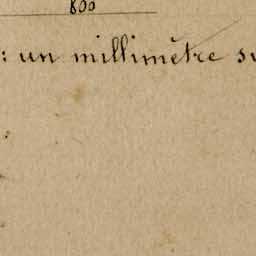 800
: un millimètre